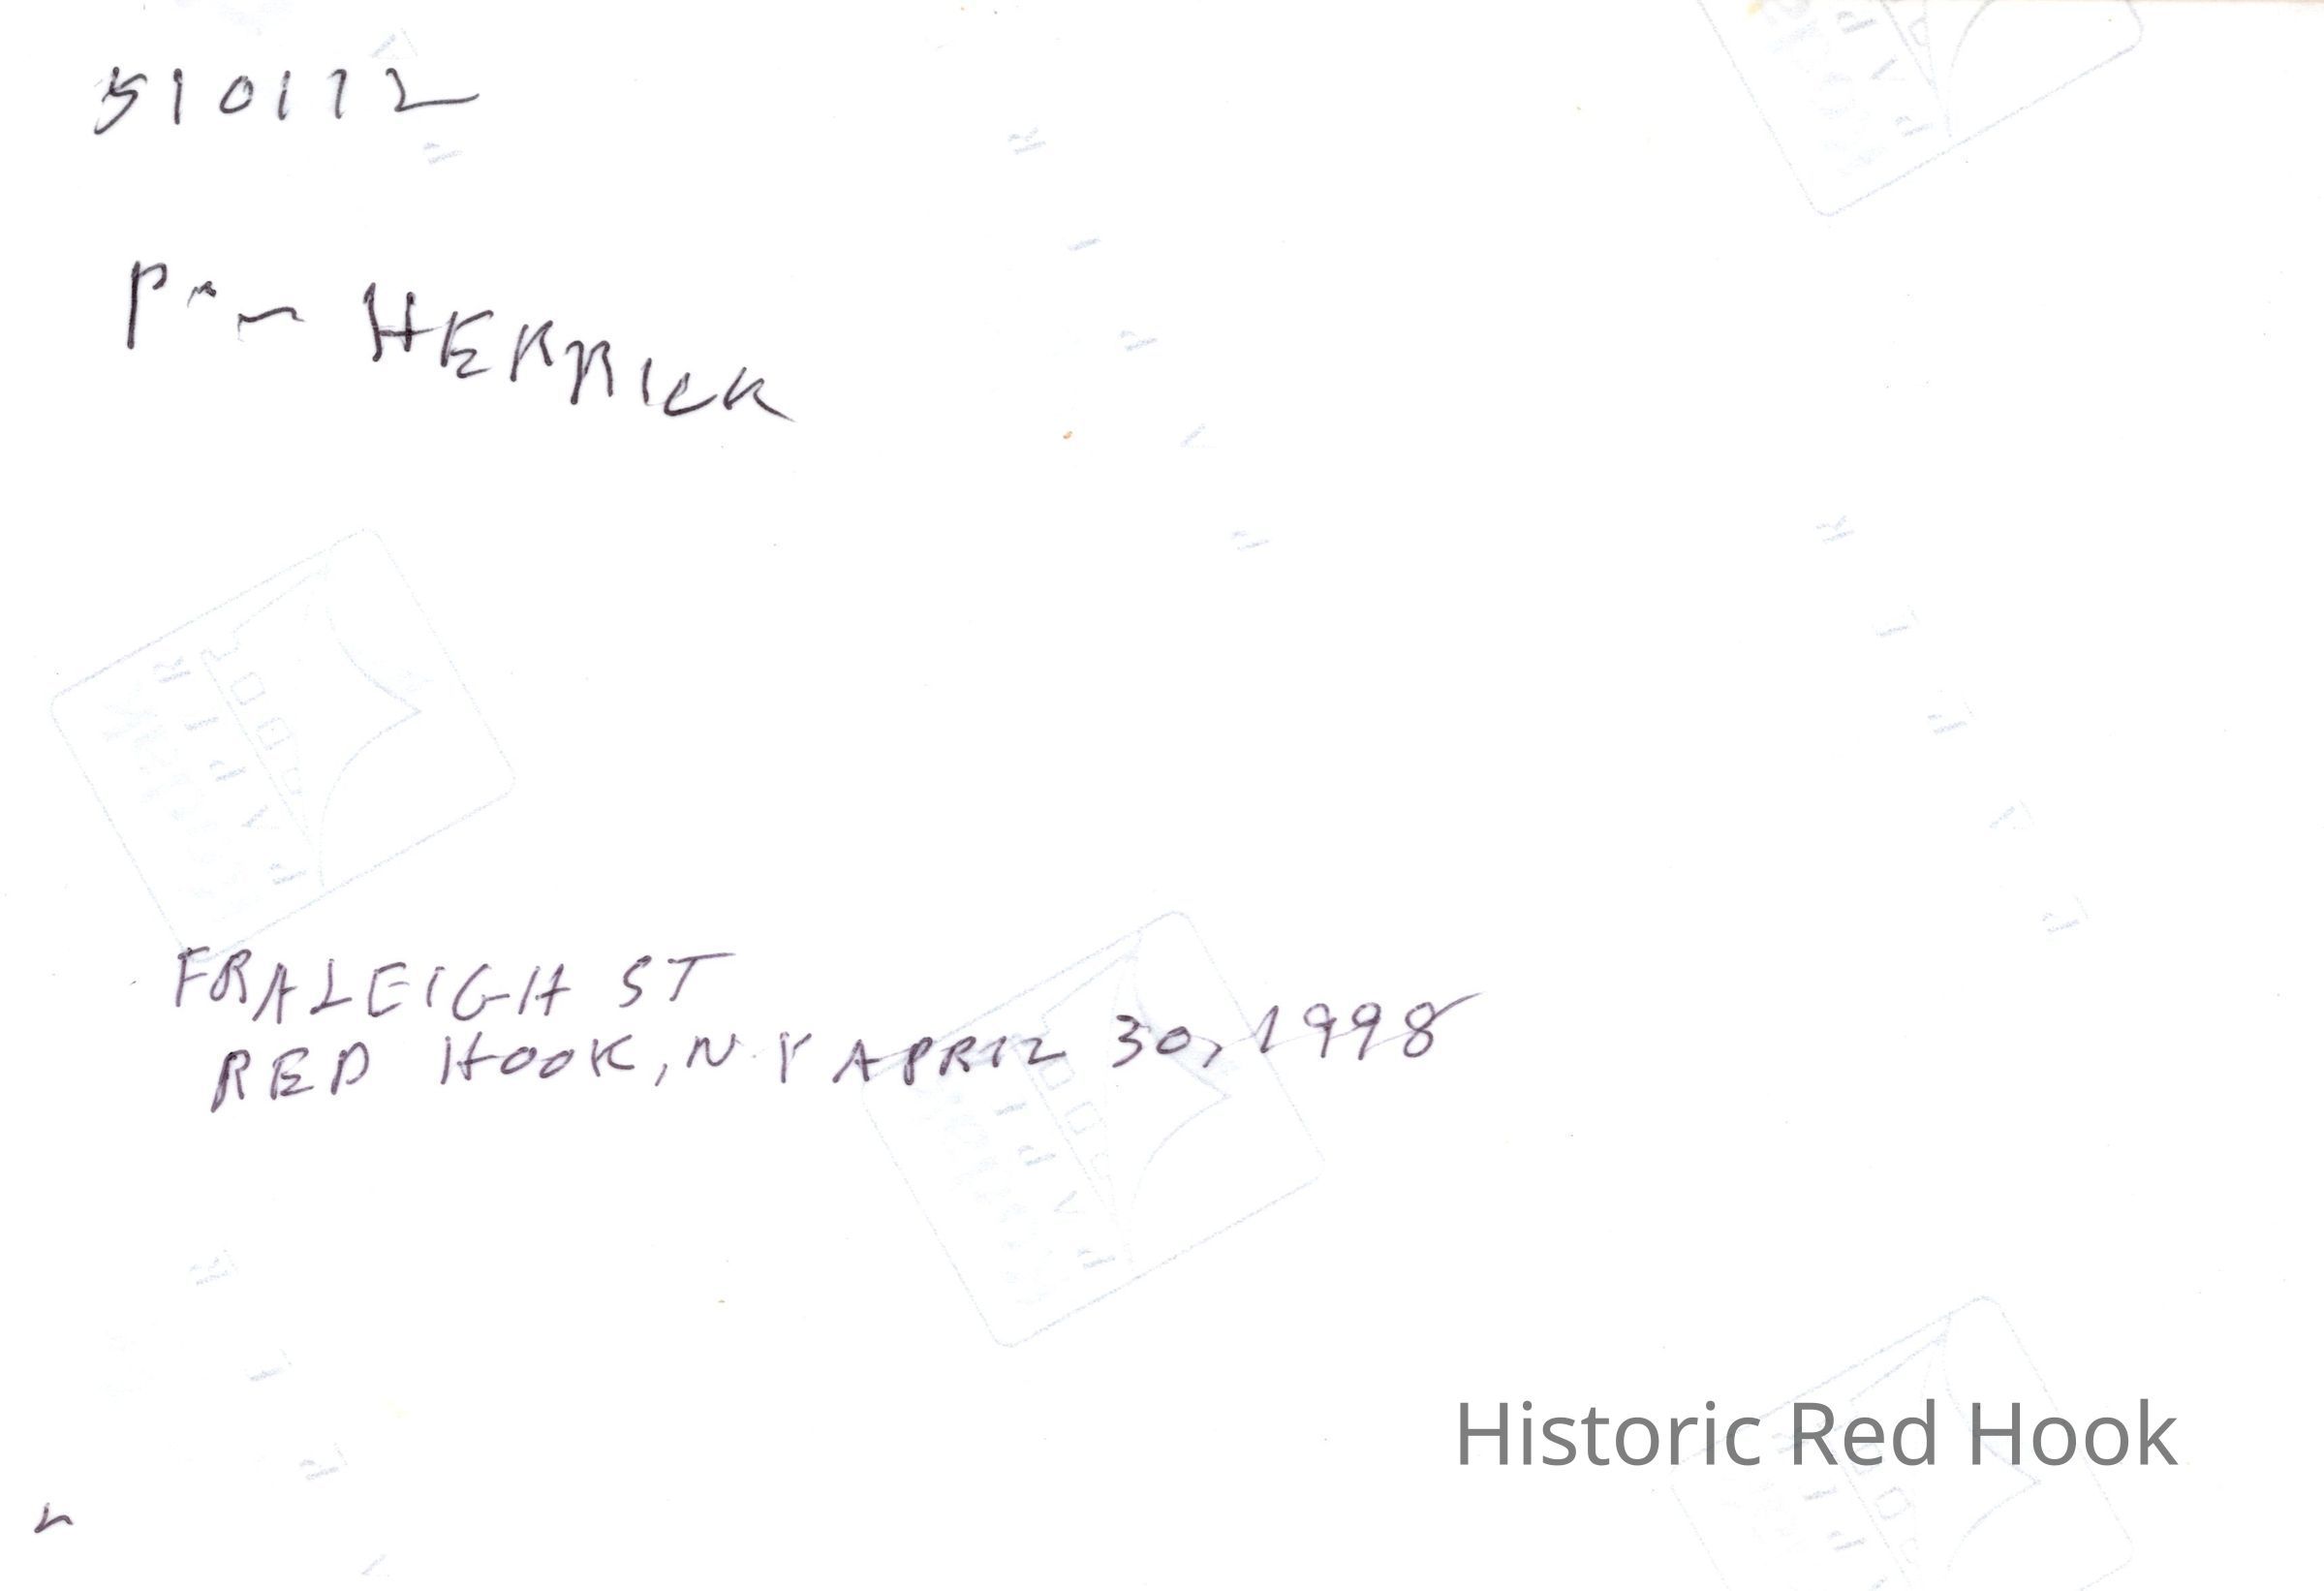 510172
HERRICK
FRALEIGH ST
RED HOOK, N.Y APRIL 30, 1998
Historic Red Hook